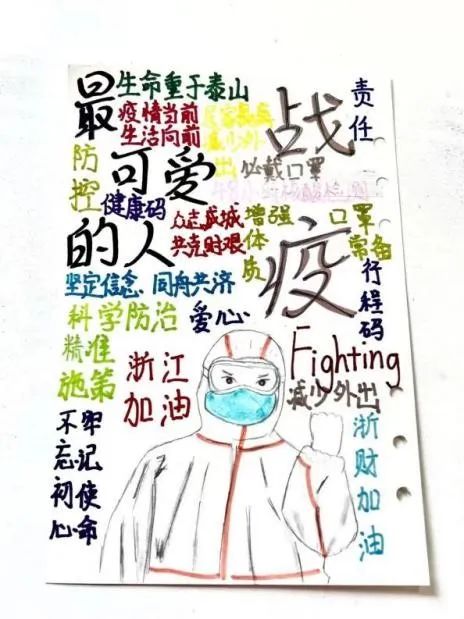 最可爱的人
生命重于泰山
疫情当前
生活向前
减少外出
战疫
责任
防控
健康码
必戴口罩
48小时核酸检测
众志成城
共克时艰
增强体质
口罩常备
行程码
坚定信念、同舟共济
科学防治
爱心
精准施第
浙江加油
Fighting
减少外出
不忘初心
牢记使命
浙财加油